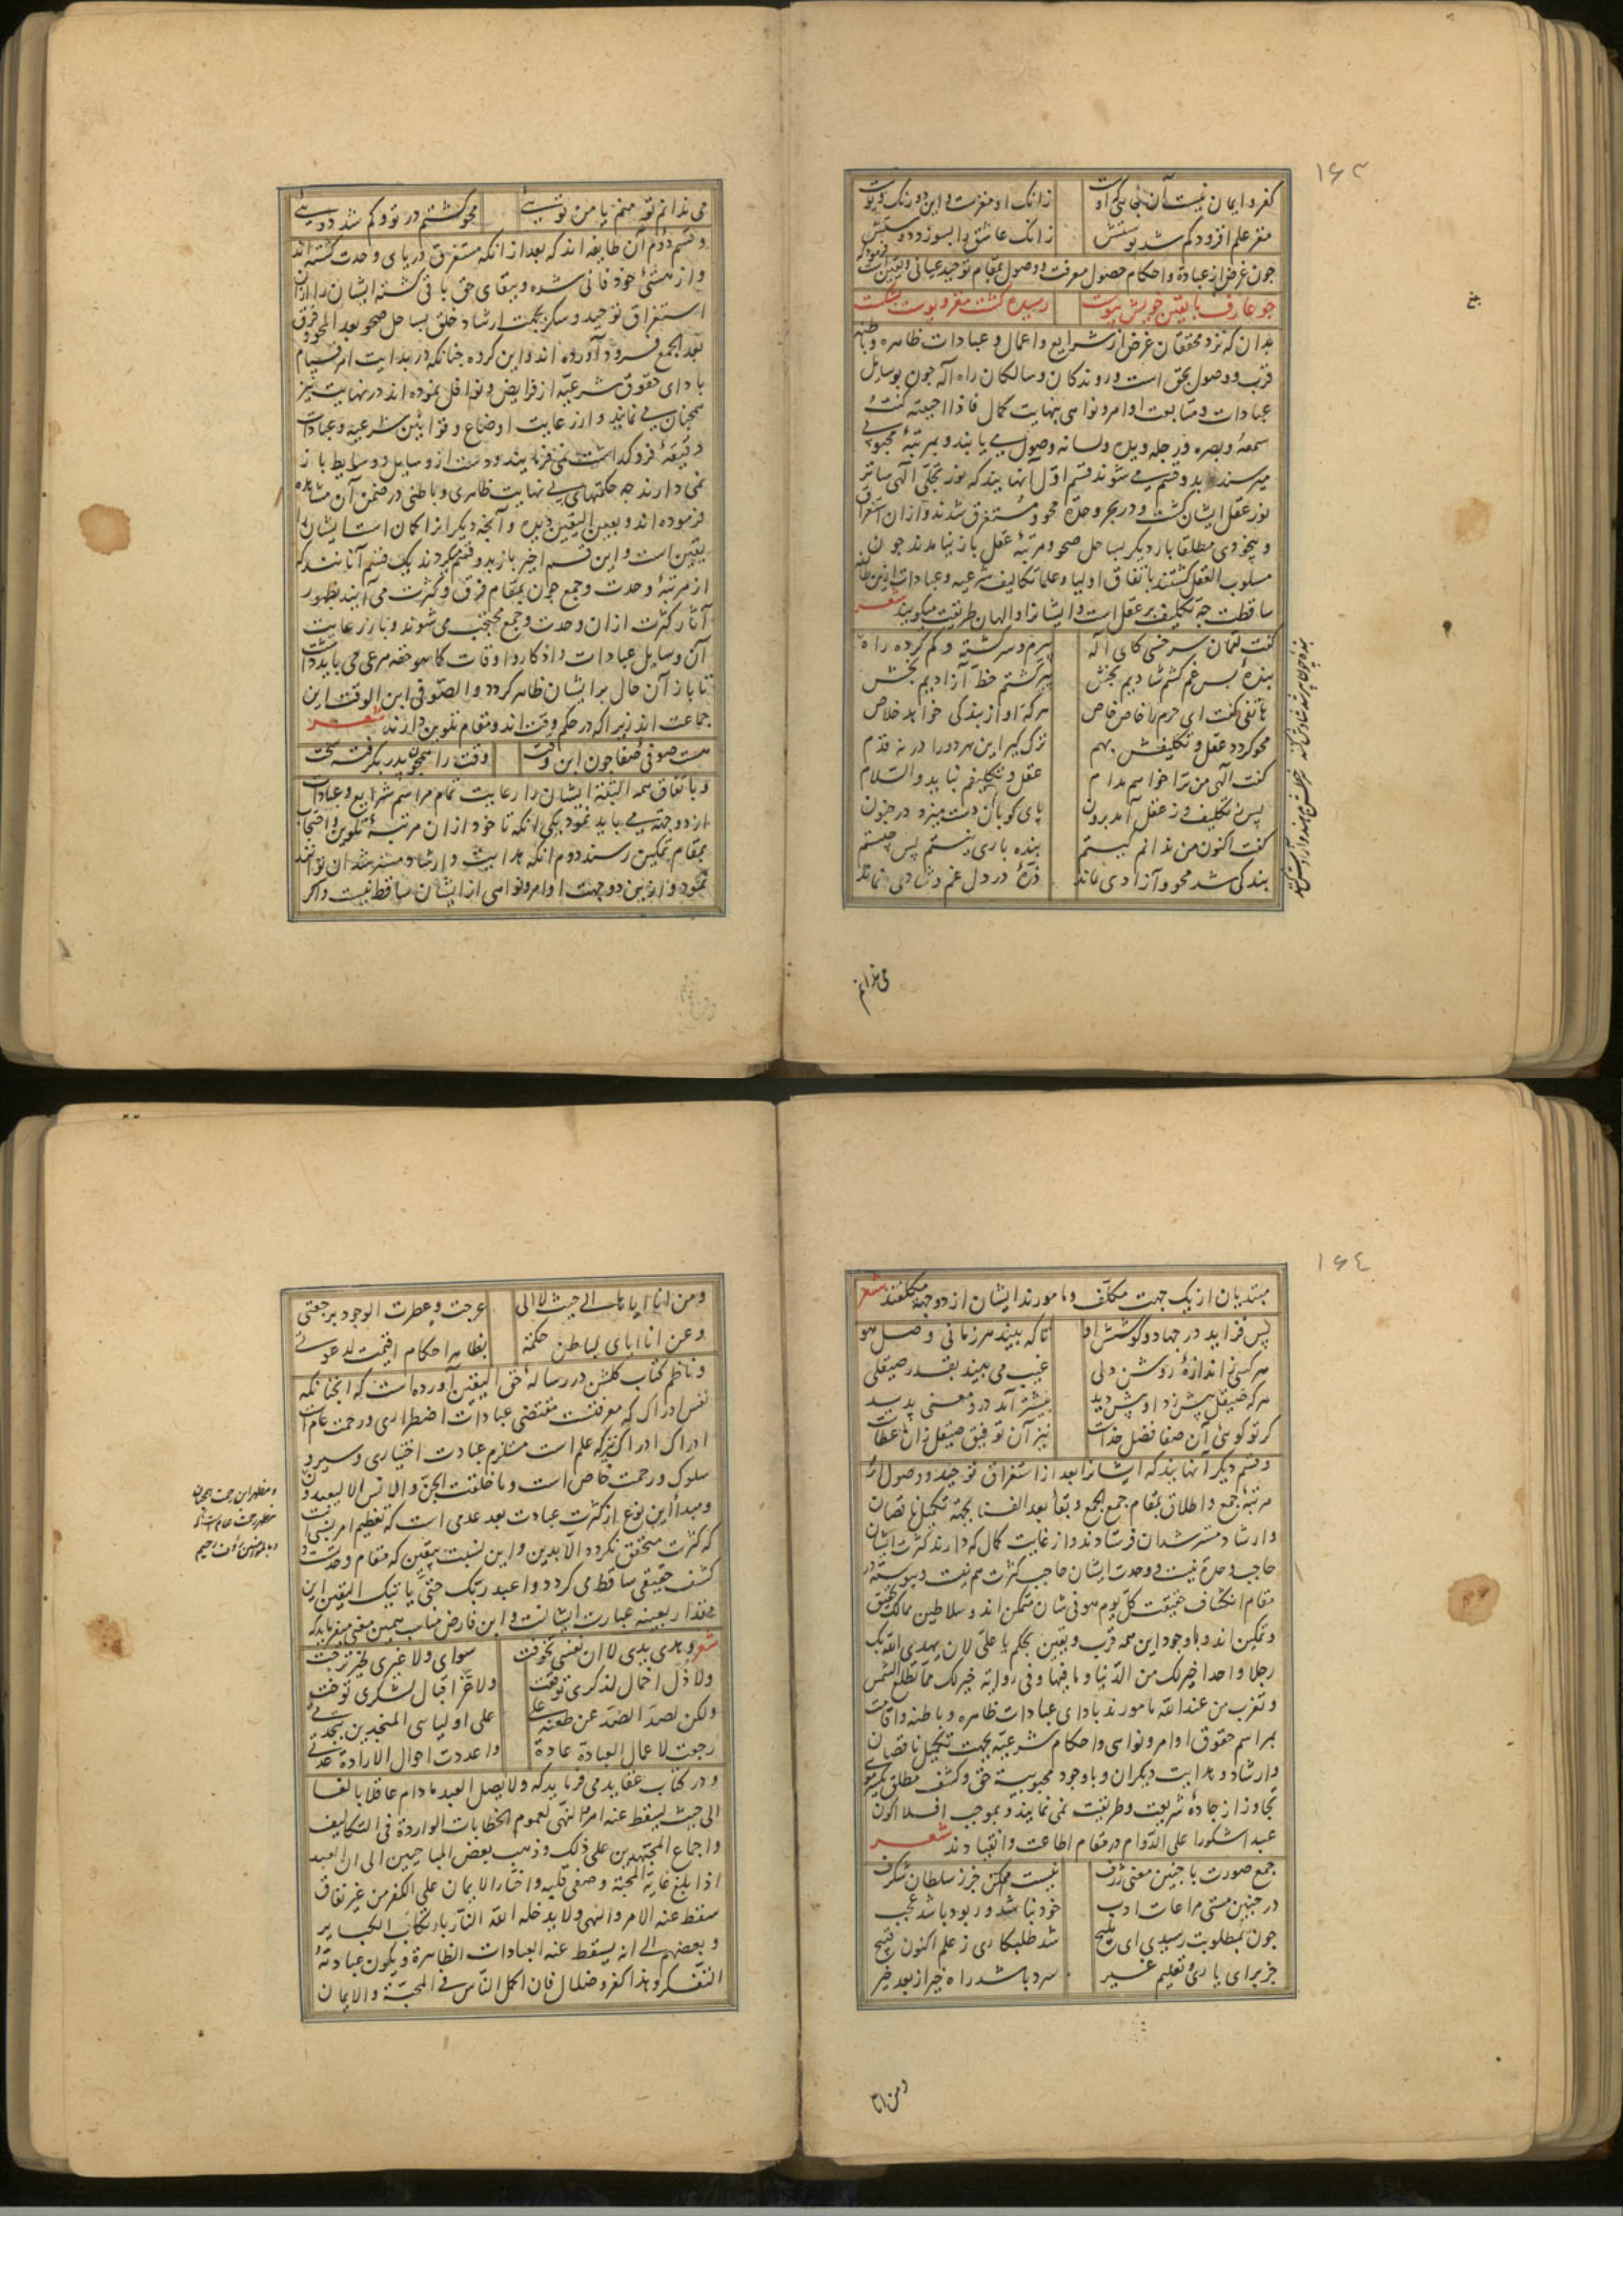 ۱۶۳
کفر و ایمان نیست آن جائی که اوست
زانک او مغزست و این دو رنگ و پوست
مغز علم افزود کم شد پوستش
زانک عاشق را بسوزد دوستش
چون غرض از عبادة و احکام حصول معرفت و وصول بمقام توحید عیانی و یقین است فرمود که
چو عارف با یقین خویش پیوست
رسیده گشت مغز و پوست بشکست
بدان که نزد محققان غرض از شرایع و اعمال و عبادات ظاهره و باطنه
قرب و وصول بحق است و روندکان و سالکان راه اله چون بوسایل
عبادات و متابعت اوامر و نواهی بنهایت کمال فاذا احببته کنت
سمعه و بصره و رجله و یده و لسانه وصول می یابند و بمرتبهٔ محبوبی
میرسند بدو قسم می شوند قسم اول آنهایند که نور تجلی آلهی ساتر
نور عقل ایشان گشت و در بحر وحدة محو و مستغرق شدند و از ان استغراق
و بیخودی مطلقا باز دیکر بساحل صحو و مرتبهٔ عقل باز نیامدند چون
مسلوب العقل گشتند باتفاق اولیا و علما تکالیف شرعیه و عبادات ازین طایفه
ساقطست چه تکلیف بر عقل است و ایشانرا والهان طریقت میکویند شعر
گفت لقمان سرخسی کای اله
پیرم و سرگشته و گم کرده راه
بندهٔ بس غم کشم شادیم بخش
پیر گشتم خط آزادیم بخش
هاتفی گفت ای حرم را خاص خاص
هر که او از بندگی خواهد خلاص
محو گردد عقل و تکلیفش بهم
ترک گیر این هر دو را در نه قدم
گفت الهی من ترا خواهم مدام
عقل و تکلیفم نباید والسلام
پس ز تکلیف و ز عقل آمد برون
پای کوبان دست میزد در جنون
گفت اکنون من ندانم کیستم
بنده باری نیستم پس چیستم
بندگی شد محو و آزادی نماند
ذرهٔ در دل غم و شادی نماند
می ندانم
می ندانم تو منم یا من توئی
محو گشتم در تو و گم شد دوئی
و قسم دوم آن طایفه اند که بعد از انکه مستغرق دریای وحدت گشته اند
و از هستئ خود فانی شده و ببقای حق باقی گشته ایشان را از ان
استغراق توحید و سکر بجهت ارشاد خلق بساحل صحو بعد المحو و فرق
بعد الجمع فرود آورده اند و این گروه چنانکه در بدایت امر قیام
بادای حقوق شرعیه از فرایض و نوافل نموده اند در نهایت نیز
همچنان می نمایند و از رعایت اوضاع و قوانین شرعیه و عبادات
دقیقهٔ فرو گذاشت نمی فرمایند و دست از وسایل و وسایط باز
نمی دارند چه حکمتهای بی نهایت ظاهری و باطنی در ضمن آن مشاهده
فرموده اند و بعین الیقین دیده و آنچه دیگر از امکان است ایشان را
یقین است و این قسم اخیر باز بدو قسم میگردند یک قسم آنانند که
از مرتبهٔ وحدت و جمع چون بمقام فرق و کثرت می آیند بظهور
آثار کثرت از ان وحدت و جمع محتجب می شوند و باز رعایت
آن وسایل عبادات و اذکار و اوقات کما هو حقه مرعی می باید داشت
تا باز آن حال بر ایشان ظاهر گردد و الصوفی ابن الوقت این
جماعت اند زیرا که در حکم وقت اند و مقام تلوین دارند شعر
هست صوفی صفا چون ابن وقت
وقت را همچون پدر بگرفته سخت
و باتفاق همه البته ایشان را رعایت تمام مراسم شرایع و عبادات
از دو جهت می باید نمود یکی آنکه تا خود از ان مرتبهٔ تلوین و احتجاب
بمقام تمکین رسند دوم آنکه هدایت و ارشاد مسترشدان توانند
نمود و ازین دو جهت اوامر و نواهی از ایشان ساقط نیست و اگر
۱۶٤
مبتدیان از یک جهت مکلف و مامورند ایشان از دو جهة مکلفند شعر
پس فزاید در جهاد و کوشش او
تا که بیند هر زمانی وصل هو
هر کسی ز اندازهٔ روشن دلی
غیب می بیند بقدر صیقلی
هر که صیقل بیش زد او بیش دید
بیشتر آمد درو معنی پدید
گر تو گوئی آن صفا فضل خداست
نیز آن توفیق صیقل زان عطاست
و قسم دیگر آنهایند که ایشانرا بعد از استغراق توحید و وصول از
مرتبهٔ جمع و اطلاق بمقام جمع الجمع و بقا بعد الفنا بجهة تکمیل ناقصان
و ارشاد مسترشدان فرستادند و از غایت کمال که دارند کثرت ایشان
حاجب وحدة نیست و وحدت ایشان حاجب کثرت هم نیست و پیوسته در
مقام انکشاف حقیقت کل یوم هو فی شان متمکن اند و سلاطین ممالک تحقیق
و تمکین اند و با وجود این همه قرب و یقین بحکم یا علی لان یهدی الله بک
رجلا واحدا خیر لک من الدنیا و ما فیها و فی روایة خیر لک مما تطلع الشمس
و تغرب من عند الله مامورند بادای عبادات ظاهره و باطنه و اقامت
بمراسم حقوق اوامر و نواهی و احکام شرعیه بجهت تکمیل ناقصان
و ارشاد و هدایت دیگران و با وجود محبوبیة حق و کشف مطلق یکسر موی
تجاوز از جادهٔ شریعت و طریقت نمی نمایند و بموجب افلا اکون
عبدا شکورا علی الدوام در مقام اطاعت و انقیادند شعر
جمع صورت با چنین معنی ژرف
نیست ممکن جز ز سلطان شگرف
در چنین مستی مراعات ادب
خود نباشد ور بود باشد عجب
چون بمطلوبت رسیدی ای ملیح
شد طلبکاری ز علم اکنون قبیح
جز برای یاری و تعلیم غیر
سرد باشد راه خیر از بعد خیر
و من انا
و من انا ایاها الی حیث لا الی
عرجت و عطرت الوجود برجعتی
و عن انا ایای لباطن حکمة
بظاهر احکام اقیمت لدعوتی
و ناظم کتاب گلشن در رسالهٔ حق الیقین آورده است که انچنانکه
نفس ادراک که معرفتست مقتضی عبادات اضطراری و رحمت عام است
ادراک ادراک نیز که علم است مستلزم عبادت اختیاری و سیر و
سلوک و رحمت خاص است و ما خلقت الجن و الانس الا لیعبدون
و مبدأ این نوع از کثرت عبادت بعد عدمی است که تعظیم امر نسبی است
که کثرت متحقق نگردد الا بدین و این نسبت بیقین که مقام وحدتست و
کشف حقیقی ساقط می گردد و اعبد ربک حتی یاتیک الیقین این
مقدار بعینه عبارت ایشانست و ابن فارض مناسب همین معنی میفرماید که
شعر
سوای و لا غیری لخیر ترجت
ولا ذل اخمال لذکری توقعت
ولا عز اقبال لشکری توخت
ولکن لصد الضد عن طعنه علی
علی اولیاسی المنجدین بنجدتی
رجعت لاعمال العبادة عادة
و اعددت احوال الارادة عدتی
و در کتاب عقاید می فرماید که و لا یصل العبد مادام عاقلا بالغا
الی حیث یسقط عنه الامر و النهی لعموم الخطابات الواردة فی التکالیف
و اجماع المجتهدین علی ذلک و ذهب بعض المباحیین الی ان العبد
اذا بلغ غایة المحبة و صفی قلبه و اختار الایمان علی الکفر من غیر نفاق
سقط عنه الامر و النهی و لا یدخله الله النار بارتکاب الکبایر
و بعضهم الی انه یسقط عنه العبادات الظاهرة و یکون عبادته
التفکر و هذا کفر و ضلال فان اکمل الناس فی المحبة و الایمان